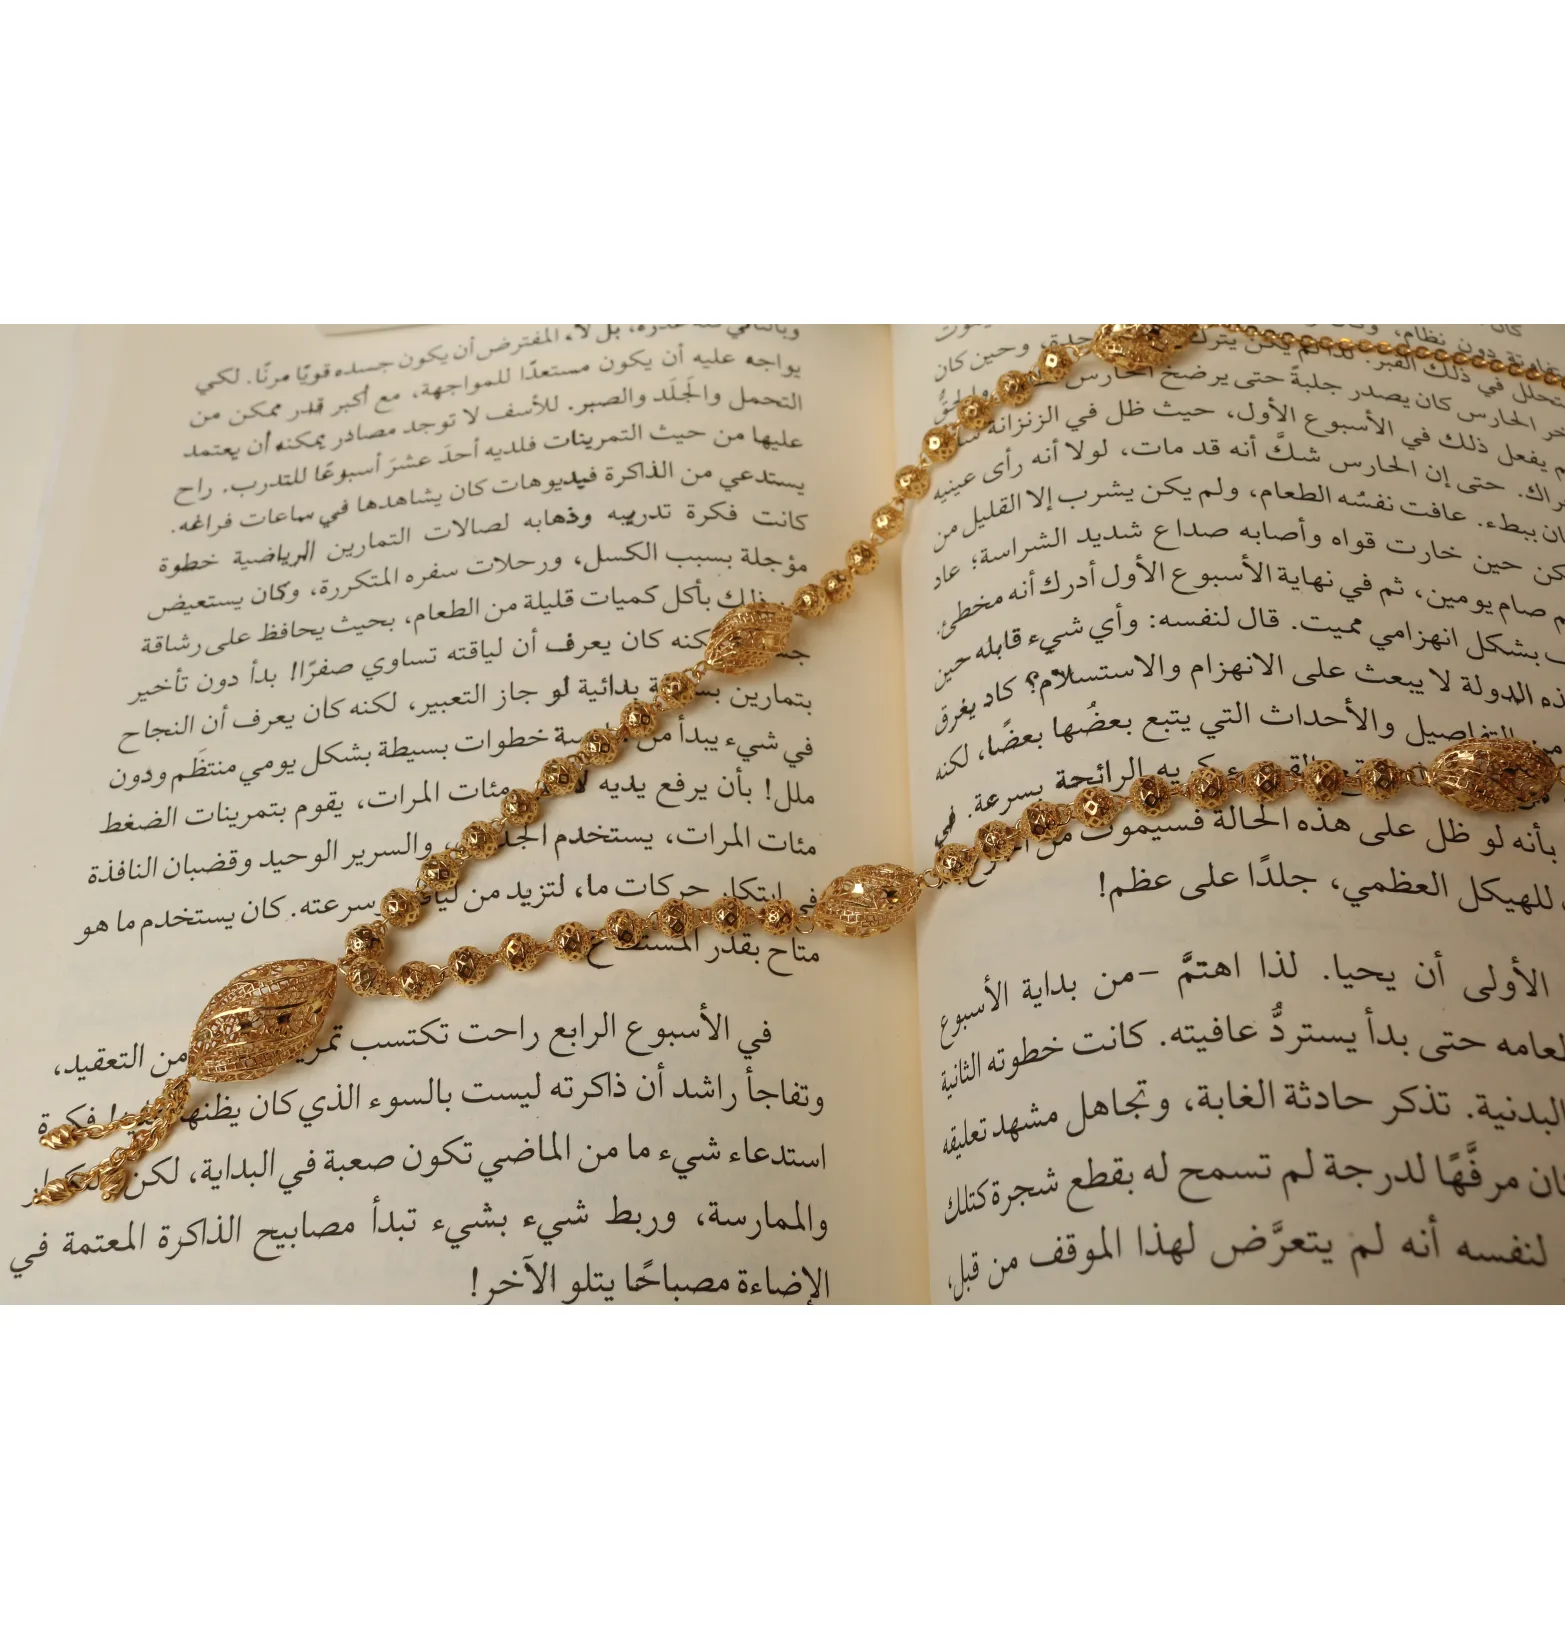 كان
دون نظام،
التحلل في ذلك القبر. لذا لم يكن يترك وحين كان
الحارس كان يصدر جلبةً حتى يرضخ الحارس
يفعل ذلك في الأسبوع الأول، حيث ظل في الزنزانة
حتى إن الحارس شكَّ أنه قد مات، لولا أنه رأى عينيه
ببطء. عافت نفسُه الطعام، ولم يكن يشرب إلا القليل من
حين خارت قواه وأصابه صداع شديد الشراسة؛ عاد
صام يومين، ثم في نهاية الأسبوع الأول أدرك أنه مخطئ.
بشكل انهزامي مميت. قال لنفسه: وأي شيء قابله حين
الدولة لا يبعث على الانهزام والاستسلام؟ كاد يغرق
من التفاصيل والأحداث التي يتبع بعضُها بعضًا، لكنه
كريه الرائحة بسرعة. في
بأنه لو ظل على هذه الحالة فسيموت من
للهيكل العظمي، جلدًا على عظم!
الأولى أن يحيا. لذا اهتمَّ –من بداية الأسبوع
حتى بدأ يستردُّ عافيته. كانت خطوته الثانية
البدنية. تذكر حادثة الغابة، وتجاهل مشهد تعليقه
مرفَّهًا لدرجة لم تسمح له بقطع شجرة كتلك
لنفسه أنه لم يتعرَّض لهذا الموقف من قبل،
بل لا، المفترض أن يكون جسده قويًا مرنًا. لكي
يواجه عليه أن يكون مستعدًا للمواجهة، مع أكبر قدر ممكن من
التحمل والجَلَد والصبر. للأسف لا توجد مصادر يمكنه أن يعتمد
عليها من حيث التمرينات فلديه أحدَ عشرَ أسبوعًا للتدرب. راح
يستدعي من الذاكرة فيديوهات كان يشاهدها في ساعات فراغه.
كانت فكرة تدريبه وذهابه لصالات التمارين الرياضية خطوة
مؤجلة بسبب الكسل، ورحلات سفره المتكررة، وكان يستعيض
بأكل كميات قليلة من الطعام، بحيث يحافظ على رشاقة
كان يعرف أن لياقته تساوي صفرًا! بدأ دون تأخير
بتمارين بدائية لو جاز التعبير، لكنه كان يعرف أن النجاح
في شيء يبدأ خطوات بسيطة بشكل يومي منتظَم ودون
ملل! بأن يرفع يديه مئات المرات، يقوم بتمرينات الضغط
مئات المرات، يستخدم والسرير الوحيد وقضبان النافذة
في ابتكار حركات ما، لتزيد من وسرعته. كان يستخدم ما هو
متاح بقدر المستطاع
في الأسبوع الرابع راحت تكتسب من التعقيد،
وتفاجأ راشد أن ذاكرته ليست بالسوء الذي كان فكرة
استدعاء شيء ما من الماضي تكون صعبة في البداية، لكن
والممارسة، وربط شيء بشيء تبدأ مصابيح الذاكرة المعتمة في
الإضاءة مصباحًا يتلو الآخر!